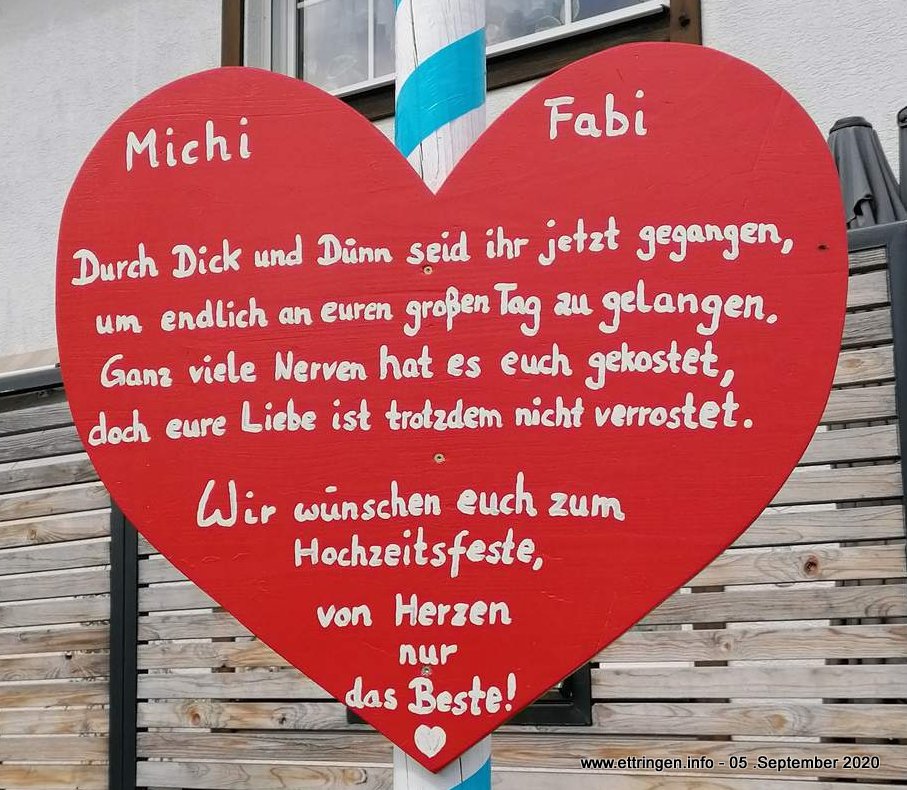 Michi Fabi
Durch Dick und Dünn seid ihr jetzt gegangen,
um endlich an euren großen Tag zu gelangen.
Ganz viele Nerven hat es euch gekostet,
doch eure Liebe ist trotzdem nicht verrostet.
Wir wünschen euch zum
Hochzeitsfeste,
von Herzen
nur
das Beste!
www.ettringen.info - 05 .September 2020